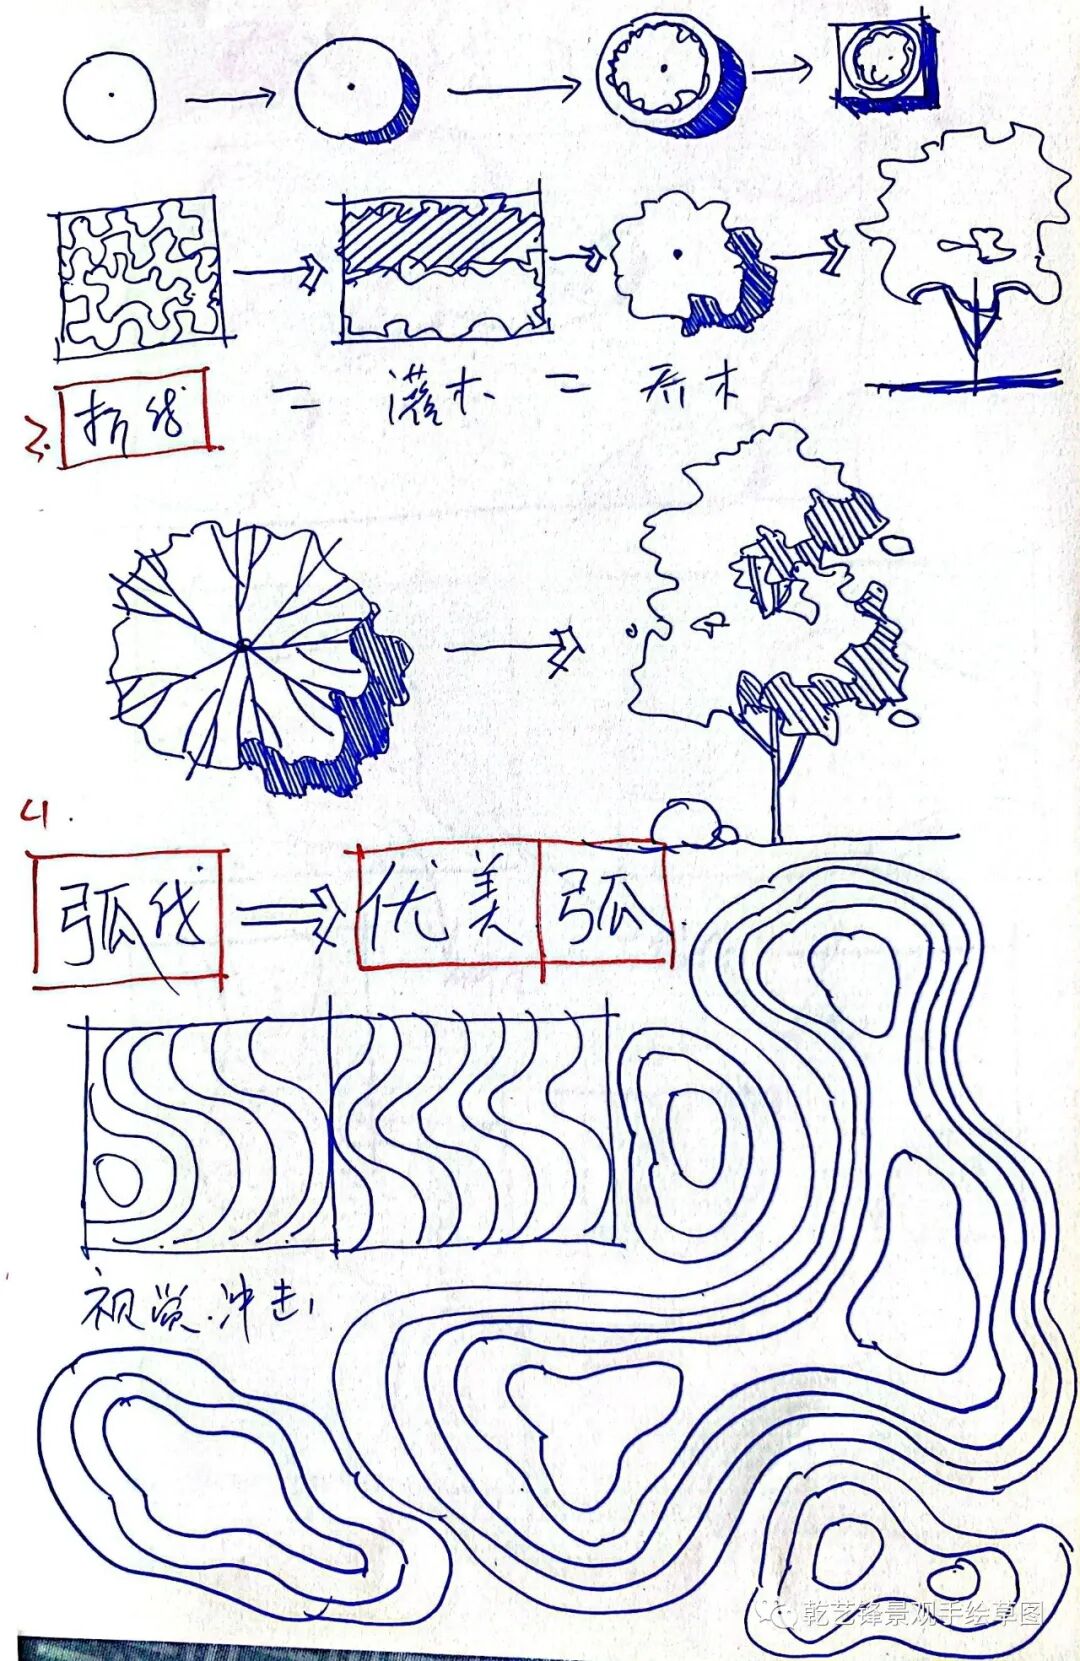 3. 折线 = 灌木 = 乔木
4.
弧线 ⇒ 优美弧
视觉.冲击
乾艺锋景观手绘草图